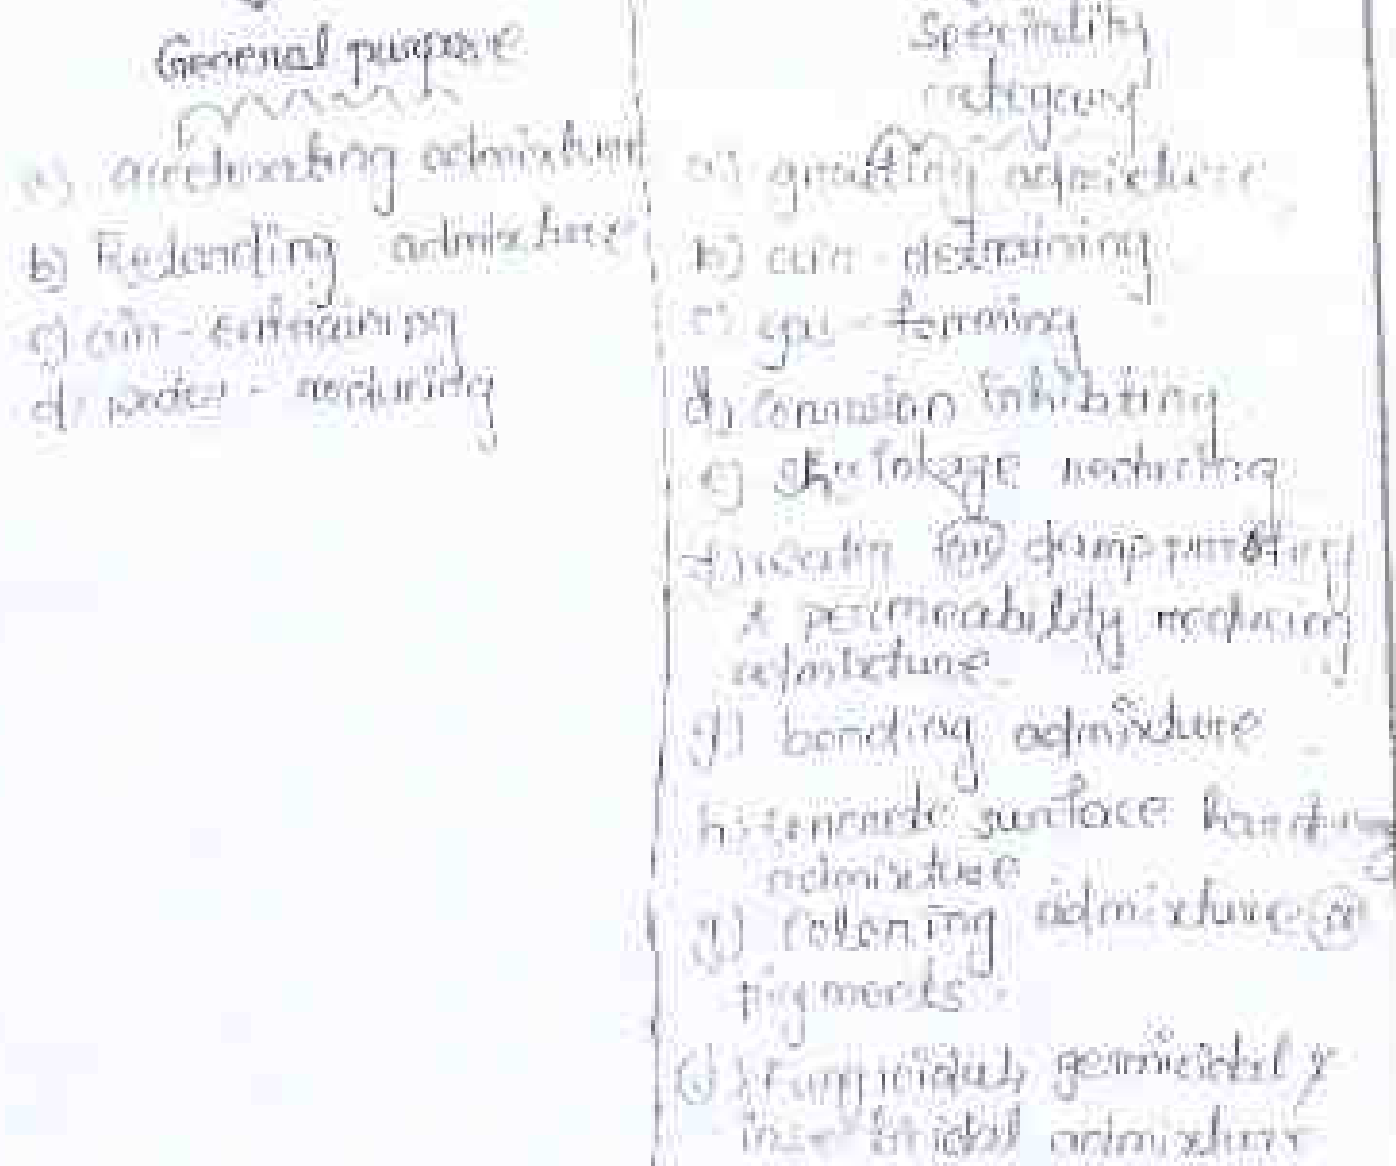 General purpose
a) accelerating admixture
b) Retarding admixture
c) air - entraining
d) water - reducing
Speciality
category
a) grouting admixture
b) air - detraining
c) gas - forming
d) corrosion inhibiting
e) shrinkage reducing
f) water (or) damp proofing
& permeability reducing
admixture
g) bonding admixture
h) concrete surface hardening
admixture
g) coloring admixture (or)
pigments.
i) Fungicidal, germicidal &
insecticidal admixture